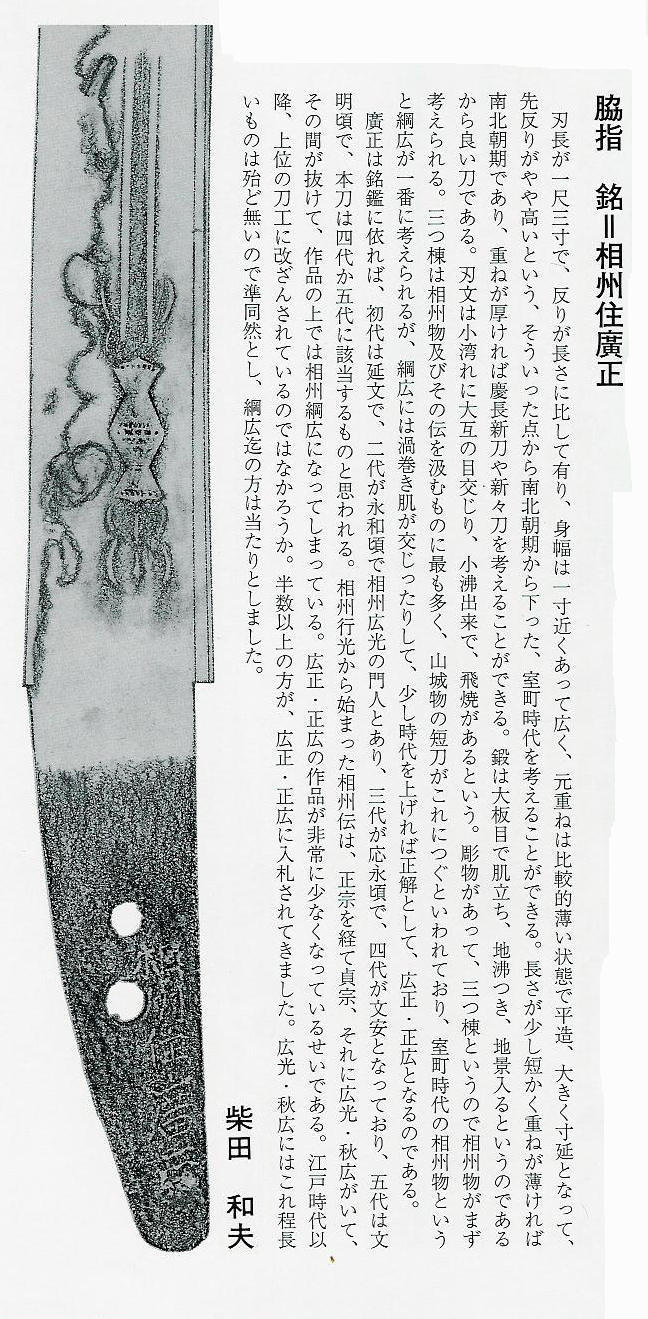 脇指　銘＝相州住廣正
刃長が一尺三寸で、反りが長さに比して有り、身幅は一寸近くあって広く、元重ねは比較的薄い状態で平造、大きく寸延となって、
先反りがやや高いという、そういった点から南北朝期から下った、室町時代を考えることができる。長さが少し短かく重ねが薄ければ
南北朝期であり、重ねが厚ければ慶長新刀や新々刀を考えることができる。鍛は大板目で肌立ち、地沸つき、地景入るというのである
から良い刀である。刃文は小湾れに大互の目交じり、小沸出来で、飛焼があるという。彫物があって、三つ棟というので相州物がまず
考えられる。三つ棟は相州物及びその伝を汲むものに最も多く、山城物の短刀がこれにつぐといわれており、室町時代の相州物という
と綱広が一番に考えられるが、綱広には渦巻き肌が交じったりして、少し時代を上げれば正解として、広正・正広となるのである。
廣正は銘鑑に依れば、初代は延文で、二代が永和頃で相州広光の門人とあり、三代が応永頃で、四代が文安となっており、五代は文
明頃で、本刀は四代か五代に該当するものと思われる。相州行光から始まった相州伝は、正宗を経て貞宗、それに広光・秋広がいて、
その間が抜けて、作品の上では相州綱広になってしまっている。広正・正広の作品が非常に少なくなっているせいである。江戸時代以
降、上位の刀工に改ざんされているのではなかろうか。半数以上の方が、広正・正広に入札されてきました。広光・秋広にはこれ程長
いものは殆ど無いので準同然とし、綱広迄の方は当たりとしました。
柴田　和夫